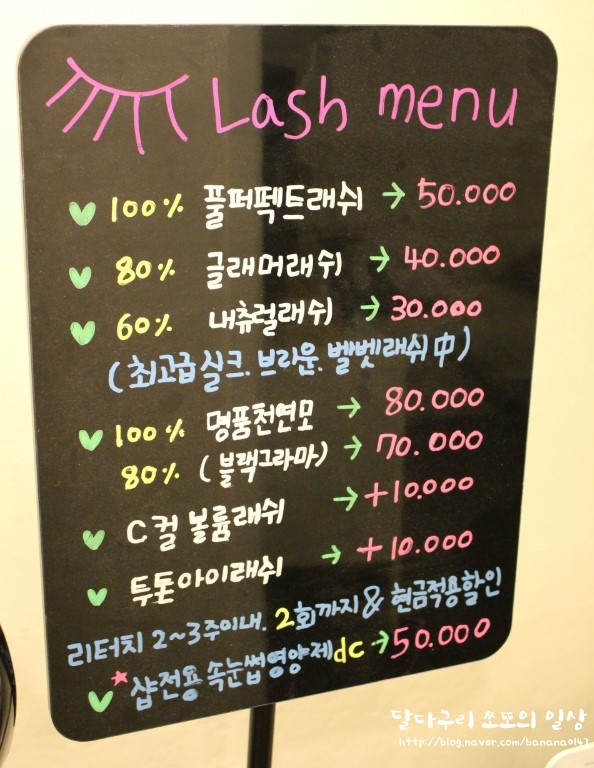 Lash menu
100% 풀퍼펙트래쉬 → 50.000
80% 글래머래쉬 → 40.000
60% 내츄럴래쉬 → 30.000
(최고급실크. 브라운. 벨벳래쉬 中)
100% 명품천연모 → 80.000
80% (블랙그라마) → 70.000
C컬 볼륨래쉬 → +10.000
투톤아이래쉬 → +10.000
리터치 2~3주이내. 2회까지 & 현금적용할인
샵전용 속눈썹영양제 dc → 50.000
달다구리 쏘또의 일상
http://blog.naver.com/banana0147